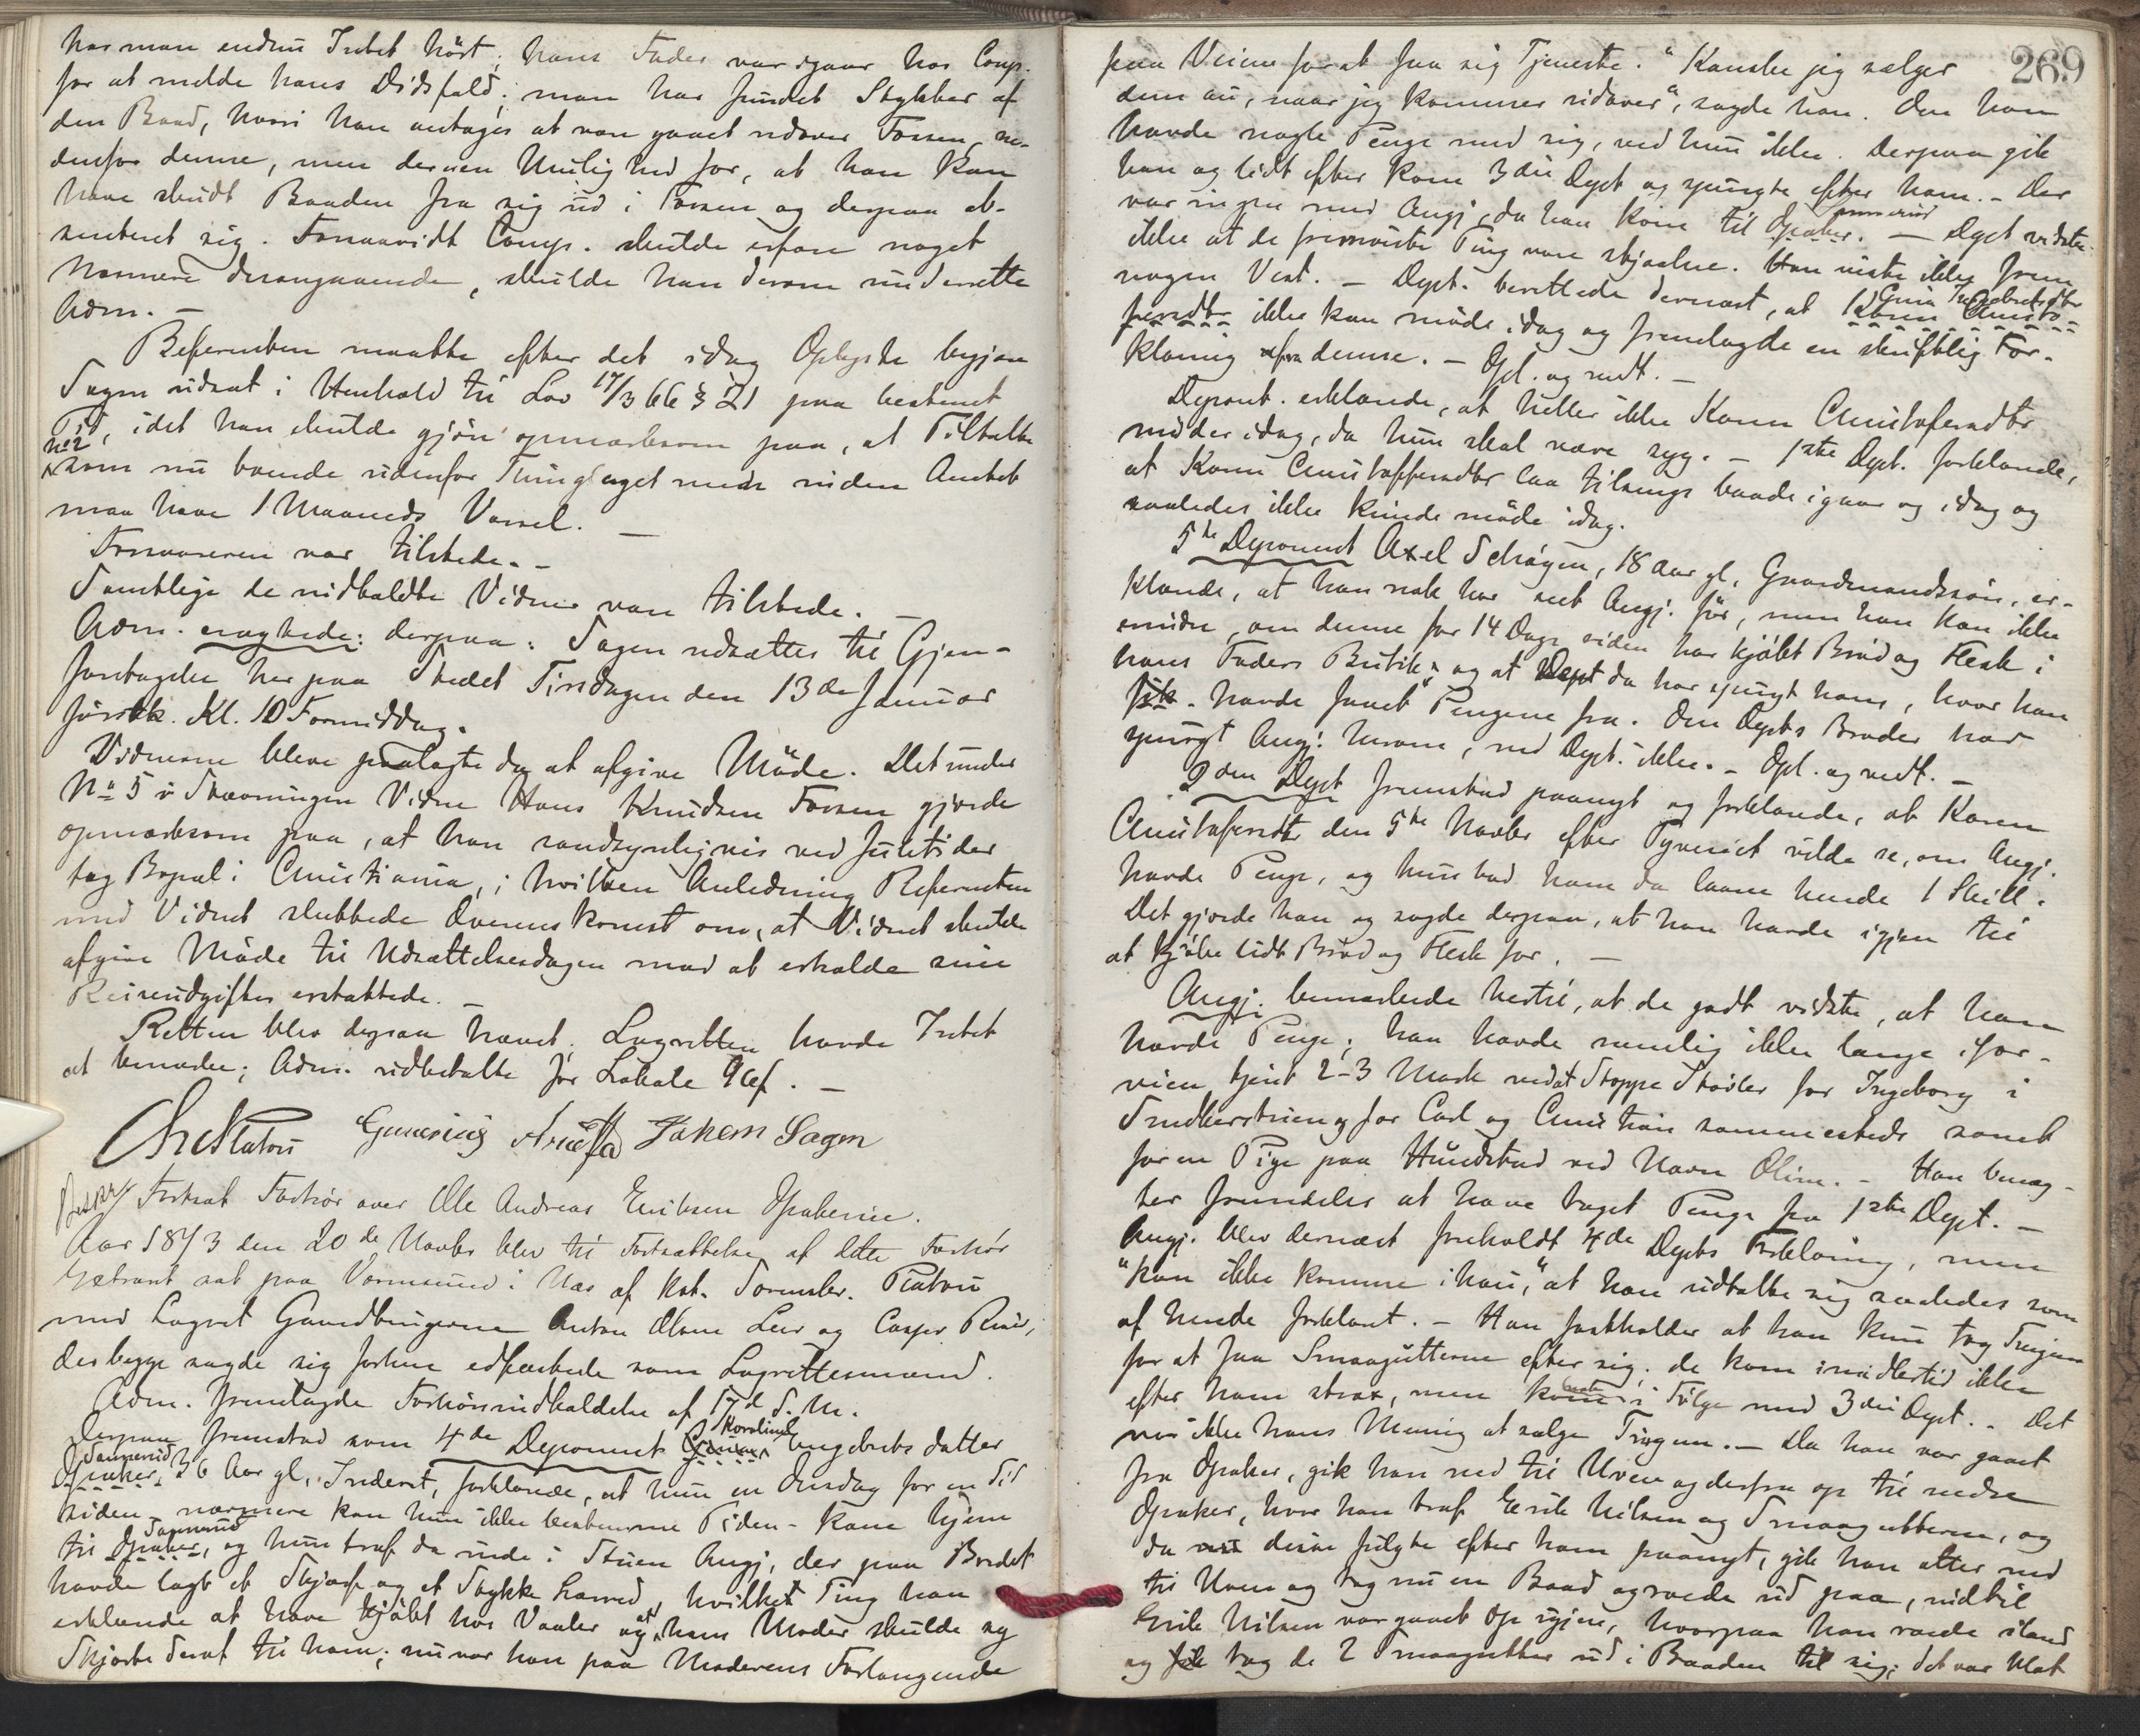 har man endnu Intet hørt; hans Fader var igaar hos Comp.
for at melde hans Dødsfald; man har fundet Stykker af
den Baad, hvori han antages at være gaaet udover Fossen ne-
denfor denne, men der er en Mulighed for, at han kan
have skudt Baaden fra sig ud i Fossen og derpaa ab-
senteret sig. Forsaavidt Comp. skulde erfare noget
nærmere desangaaende, skulde han derom underrette
Adm. –
Referenten maatte efter det idag Oplyste begjære
Sagen udsat i Henhold til Lov 17/3 66 § 21 paa bestemt
Tid, idet han skulde gjøre opmærksom paa, at Tiltalte
No 2 som nu boende udenfor Thinglaget men inden Amtet
maa have 1 Maaneds Varsel. –
Forsvareren var tilstede. –
Samtlige de indkaldte Vidner vare tilstede. –
Adm. eragtede: derpaa: Sagen udsættes til Gjen-
foretagelse her paa Stedet Tirsdagen den 13de Januar
førstk. Kl. 10 Formiddag.
Vidnerne bleve paalagte da at afgive Møde. Det under
No 5 i Stævningen Vidne Hans Knudsen Fossen gjorde
opmærksom paa, at han sandsynligvis ved Juletider
tog Bopæl i Christiania, i hvilken Anledning Referenten
med Vidnet sluttede Overenskomst om, at Vidnet skulde
afgive Møde til Udsættelsesdagen mod at erholde sine
Reiseudgifter erstattede. –
Retten blev derpaa hævet. Lagretten havde Intet
at bemærke; Adm. udbetalte for Lokale
Chr Platou Gunerius Jakem Sagen
Fortsat Forhør over Ole Andreas Eriksen Opakereie.
Aar 1873 den 20de Novbr blev til Fortsættelse af dette Forhør
Extraret sat paa Vormsund i Næs af kst. Sorenskr. Platou
med Lagret Gaardbrugerne Anton Olsen Leir og Casper Ruud,
der begge sagde sig forhen edfæstede som Lagrettesmænd.
Adm. fremlagde Forhørsindkaldelse af 17d d. M.
Derpaa fremstod som 4de Deponent Karoline Engebretsdatter
Opaker, 36 Aar gl., Inderst, forklarede, at hun en Onsdag for en Tid
siden – nærmere kan hun ikke bestemme Tiden – kom hjem
til Opaker, og hun traf da inde i Stuen Angj., der paa Bordet
havde lagt et Skjærf og et Stykke Lærred, hvilket Ting han
erklærede at have kjøbt hos Vaaler og at hans Moder skulde sy
Skjorte deraf til ham; nu var han paa Moderens Forlangende
269
paa Veien for at faa sig Tjeneste. "Kanske jeg sælger
dem au, naar jeg kommer udover", sagde han. Om han
havde nogle Penge med sig, ved hun ikke. Derpaa gik
han og lidt efter kom 3die Dept og spurgte efter ham. – Der
var ingen med Angj., da han kom til Opaker. – Dept vidste
ikke at de foreviste Ting vare stjaalne. Han viste ikke frem
nogen Vest. – Dept. berettede dernæst, at Gina Engebretsdtr
ikke kan møde idag og fremlagde en skriftlig For-
klaring fra denne. – Opl. og vedt. –
Depont. erklærede, at heller ikke Karen Christofersdtr
møder idag, da hun skal være syg. – 1ste Dept. forklarede,
at Karen Christoffersdtr laa tilsengs baade igaar og idag og
saaledes ikke kunde møde idag.
5te Deponent Axel Schøyen, 18 Aar gl., Gaardmandssøn, er-
klærede, at han nok har seet Angj. før, men han kan ikke
erindre, om denne for 14 Dage siden har kjøbt Brød og Flesk i
hans Faders Butik, og at Dept da har spurgt ham, hvor han
havde faaet Pengene fra. Om Depts Broder har
spurgt Angj. herom, ved Dept. ikke. – Opl. og vedt. –
2den Dept fremstod paanyt og forklarede, at Karen
Christofersdtr den 5te Novbr efter Tyveriet vilde se, om Angj.
havde Penge, og hun bad ham da laane hende 1 Skill.
Det gjorde han og sagde derpaa, at han havde igjen til
at kjøbe lidt Brød og Flesk for. –
Angj. bemærkede hertil, at de godt vidste, at han
havde Penge; han havde nemlig ikke længe ifor-
veien tjent 2–3 Mark ved at stoppe Støvler for Ingeborg i
og for Carl og Christian sammesteds samt
for en Pige paa Hundstad ved Navn Oline. – Han benæg-
ter fremdeles at have taget Penge fra 1ste Dept. –
Angj. blev dernæst foreholdt 4de Depts Forklaring, men
"kan ikke komme ihau", at han udtalte sig saaledes som
af hende forklaret. – Han fastholder at han kun tog Tingene
for at faa Smaagutterne efter sig; de kom imidlertid ikke
efter ham strax, men kom i Følge med 3die Dept. – Det
var ikke hans Mening at sælge Tingene. – Da han var gaaet
fra Opaker, gik han ned til Uven og derfra op til nedre
Opaker, hvor han traf Erik Nilsen og Smaagutterne, og
da disse fulgte efter ham paanyt, gik han atter ned
til Uven og tog nu en Baad og roede ud paa, indtil
Erik Nilsen var gaaet op igjen, hvorpaa han roede iland
og tog de 2 Smaagutter ud i Baaden til sig; det var blot